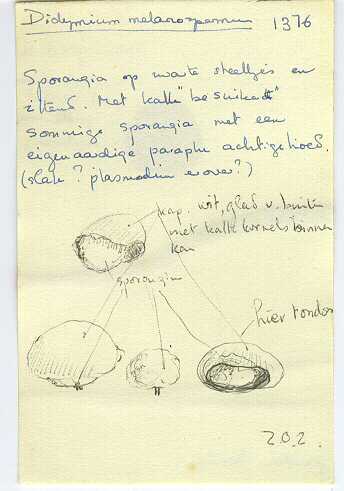 Didymium melanospermum 1376
Sporangia op zwarte steeltjes en
zittend. Met kalk "besuikerd"
sommige sporangia met een
eigenaardige paraplu achtige hoed.
(slak? plasmodium erover?)
kap. wit, glad v. buiten
met kalk korrels binnen
kan
sporangium
hier rondom
202